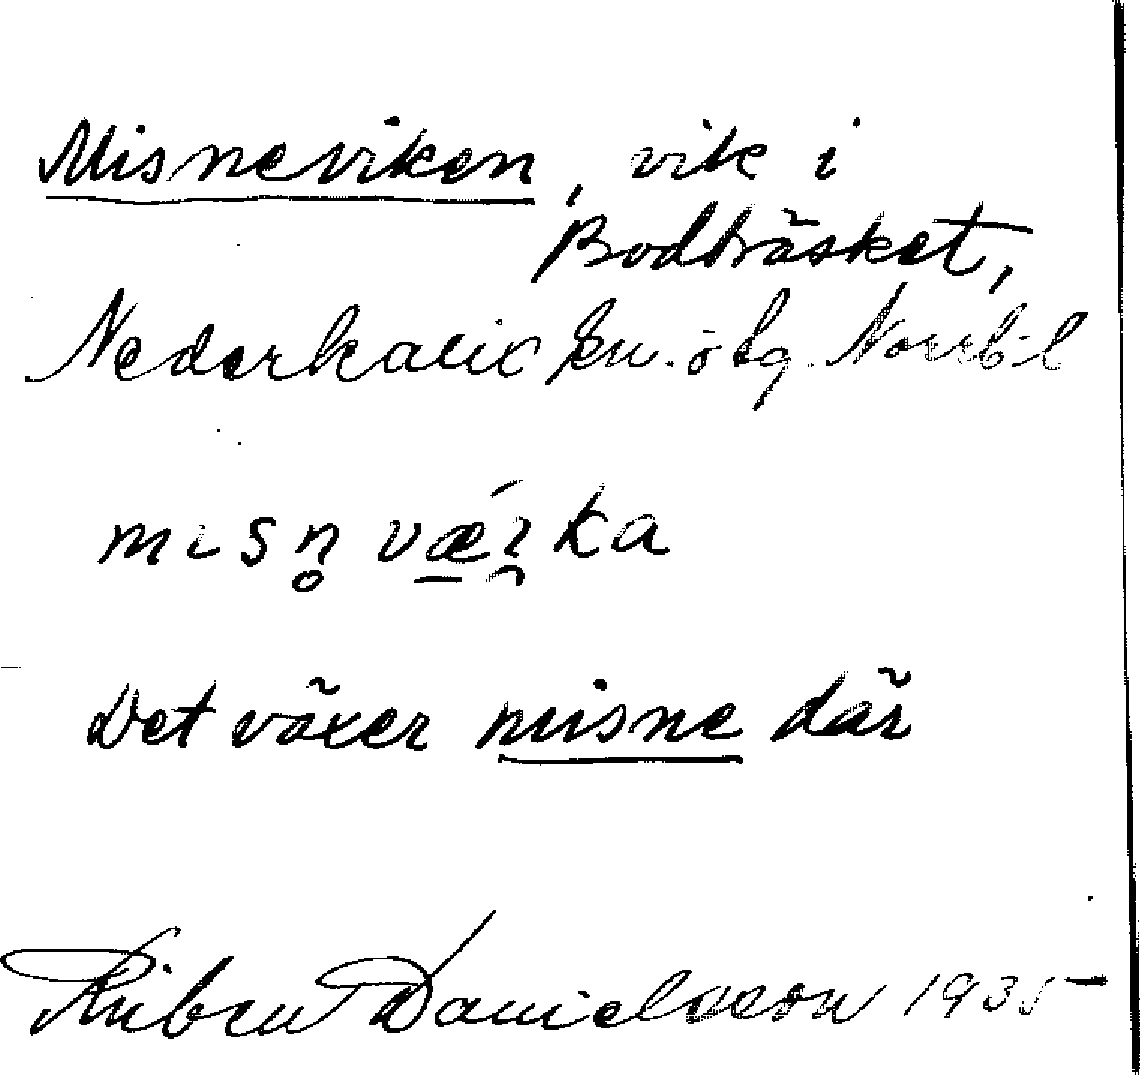 Misneviken, vik i
Bodträsket,
Nederkalix sn. ö tg. Norrb. l
mısn̥ vǽ̲ı̯ka
Det växer misne där
Ruben Danielsson 1935